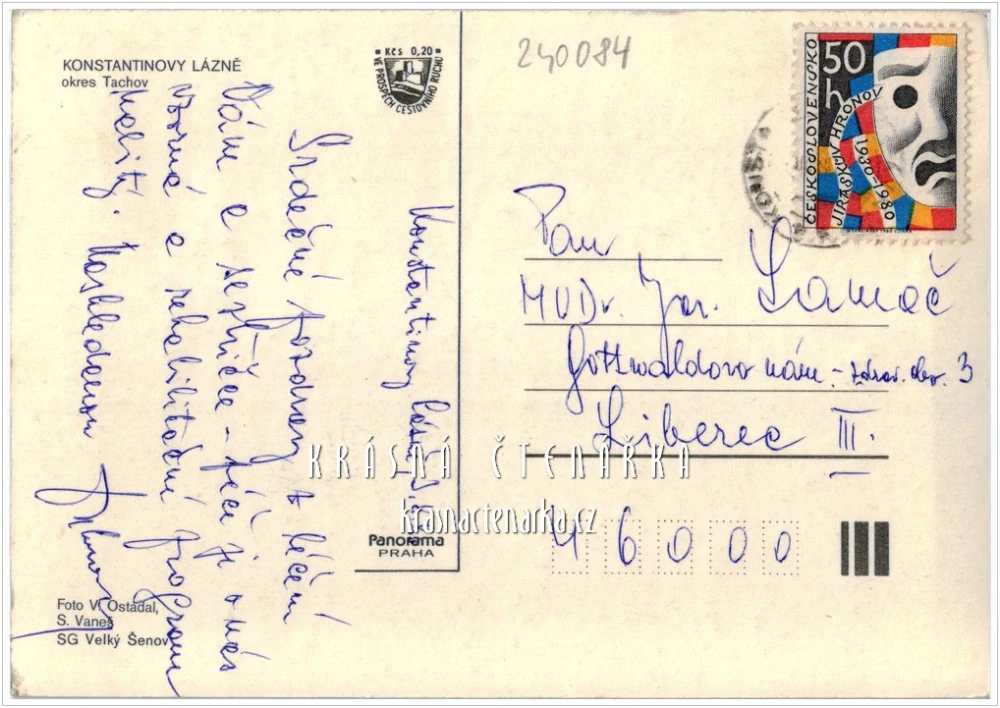 KONSTANTINOVY LÁZNĚ
okres Tachov
Kčs 0,20
VE PROSPĚCH CESTOVNÍHO RUCHU
240084
ČESKOSLOVENSKO
50 h
JIRÁSKŮV HRONOV
1930-1980
Konstantinovy Lázně
Srdečné pozdravy z léčení
Vám a sestřičce - péči je o nás
vzorná a rehabilitační program
Nashledanou
Pan
MUDr. Jar.
Gottwaldovo nám. - zdrav. obv. 3
Liberec III.
46000
KRÁSNÁ ČTENÁŘKA
krasnactenarka.cz
Panorama
PRAHA
Foto V. Ostádal,
S. Vaneš
SG Velký Šenov